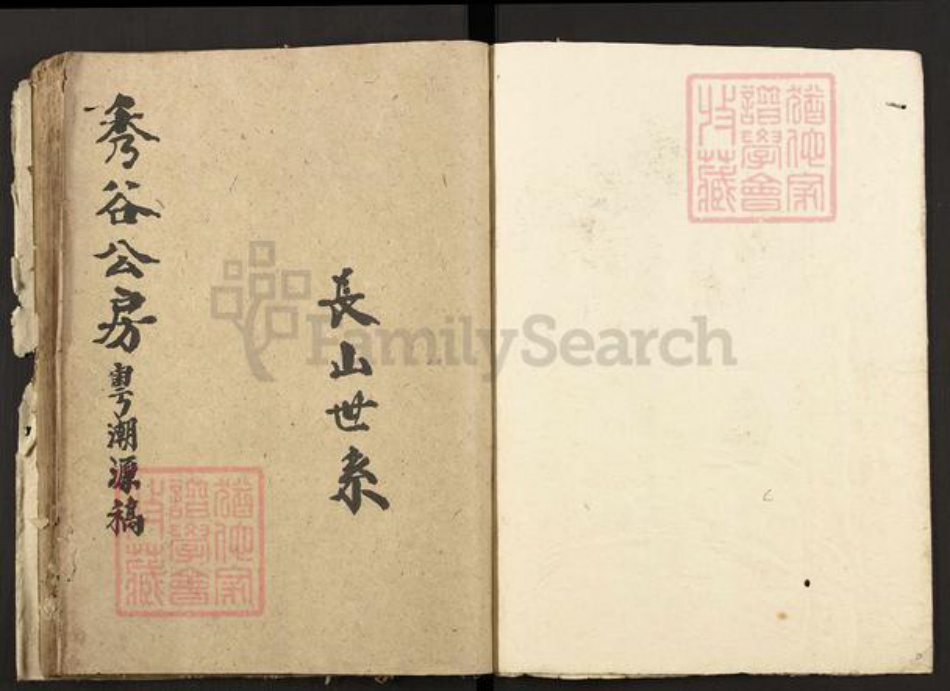 長山世系
秀谷公房粵潮源稿
猶他家
譜學會
收藏
猶他家
譜學會
收藏
FamilySearch